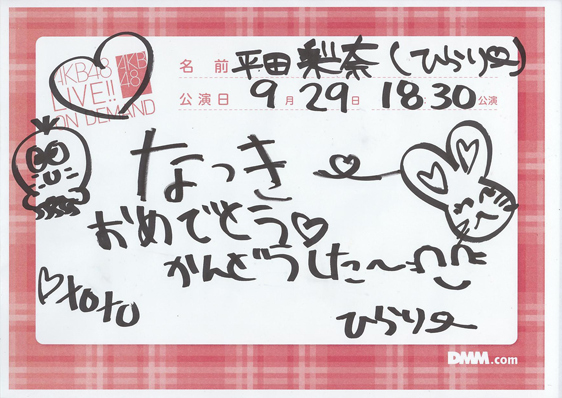 AKB48
LIVE!!
ON DEMAND
AKB
48
名前 平田梨奈(ひらりー)
公演日 9月29日 18:30公演
なっき
おめでとう♡
かんどうした〜
♡xoxo
ひらりー
DMM.com